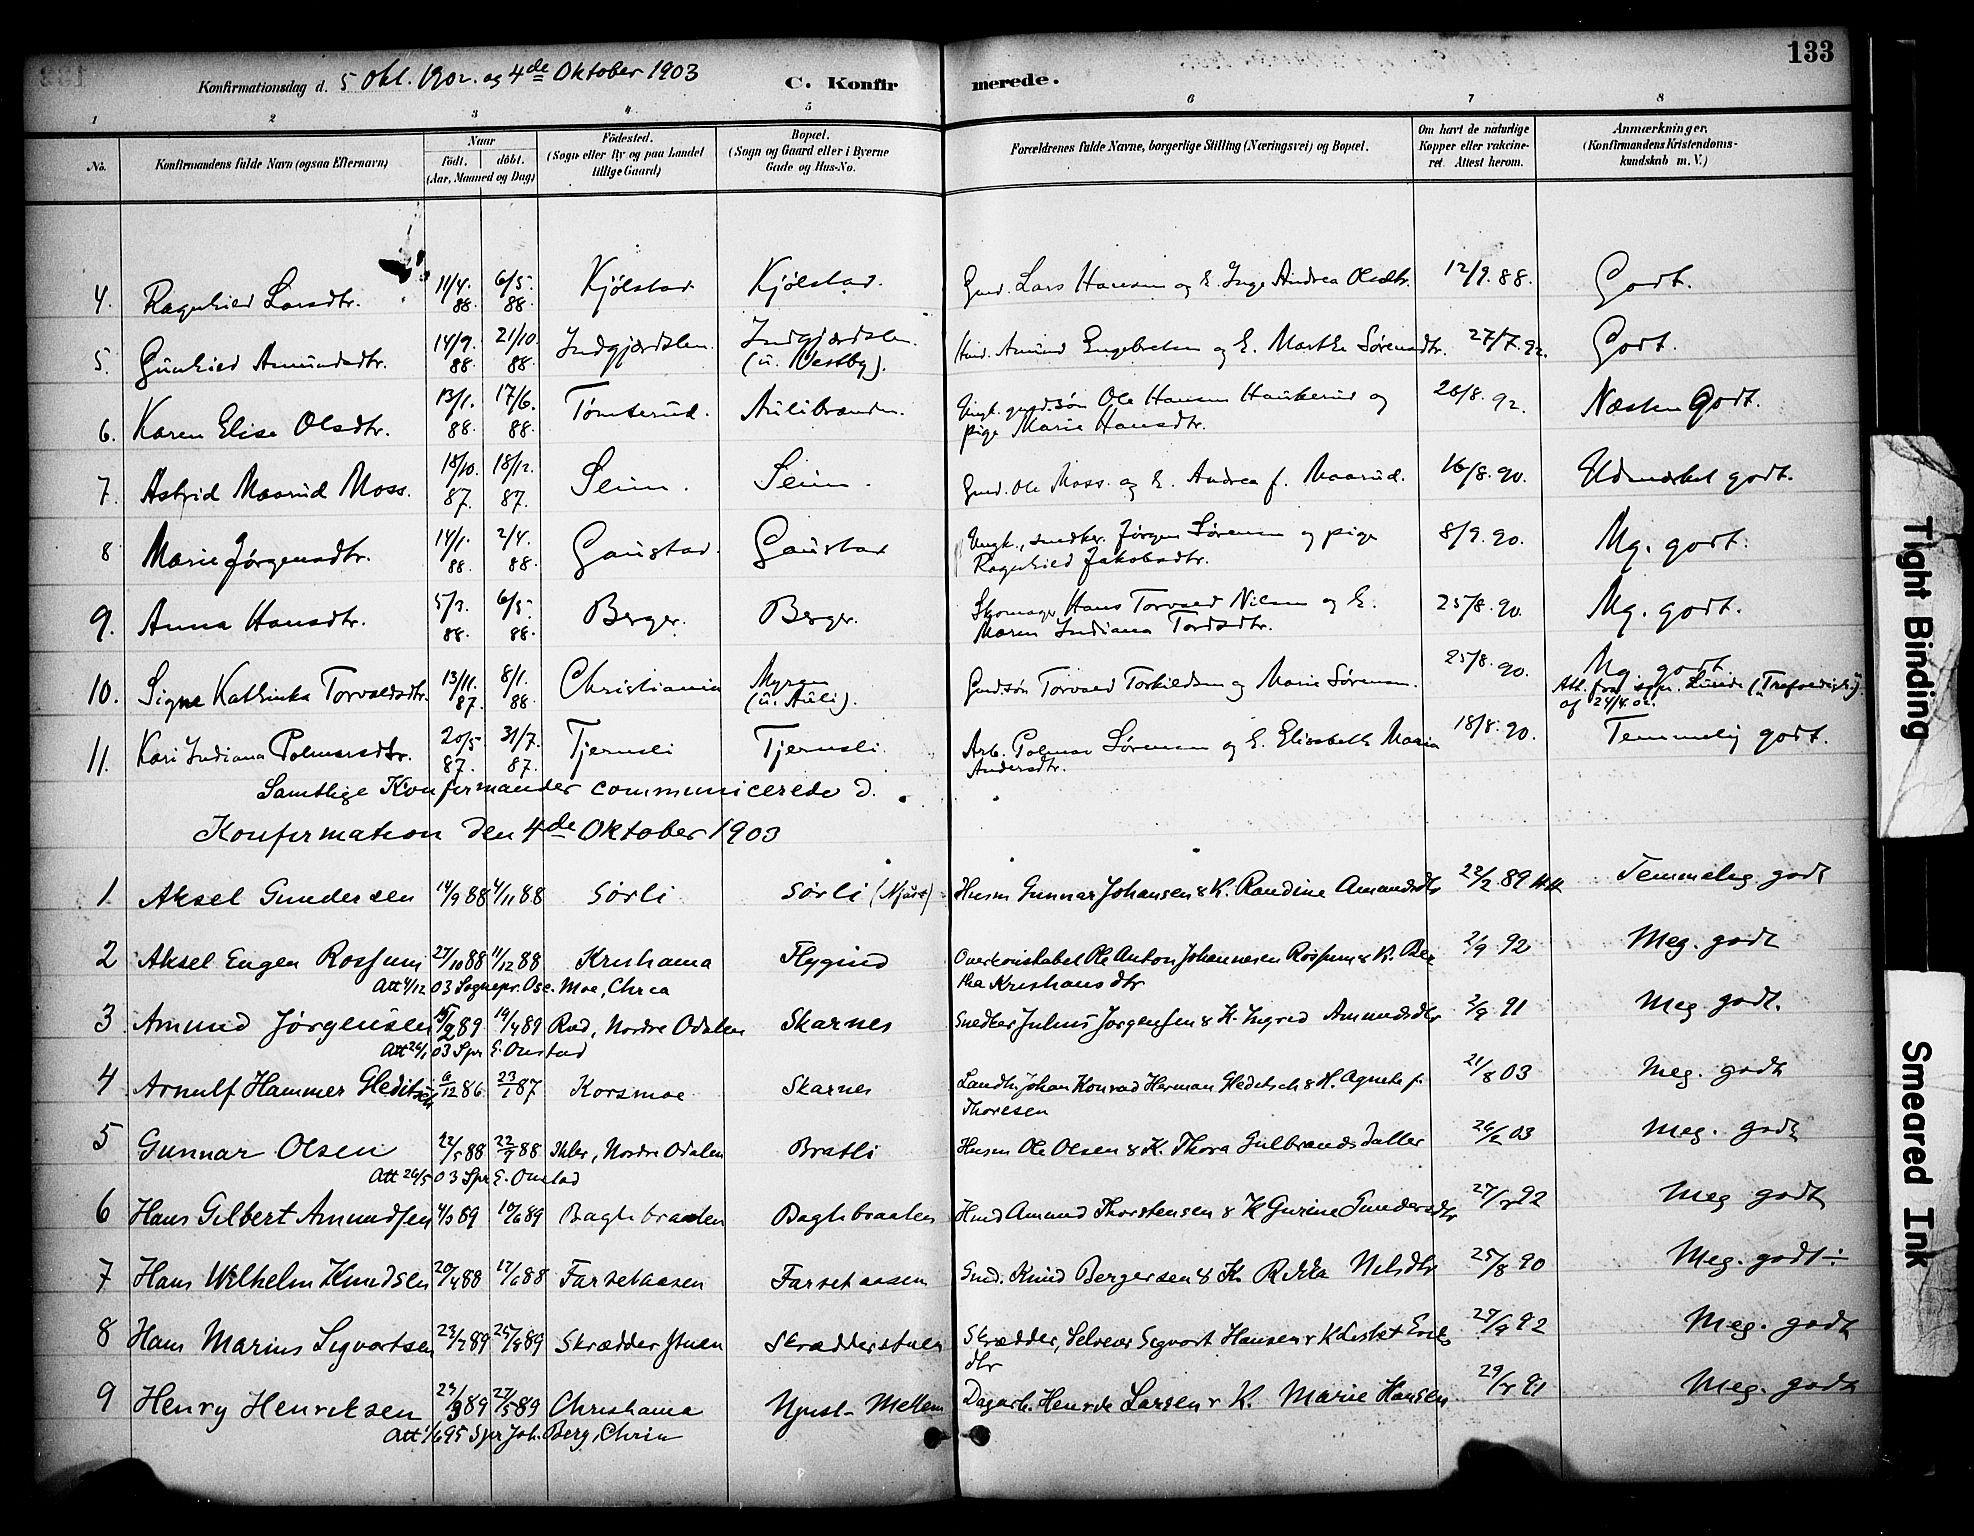 133
Konfirmationsdag d. 5 Okt. 1902. og 4de Oktober 1903 C. Konfirmerede.
1 2 3 4 5 6 7 8
No. Konfirmandens fulde Navn (ogsaa Efternavn) Naar født, døbt. (Aar, Maaned og Dag) Fødested. (Sogn eller By og paa Landet tillige Gaard) Bopæl. (Sogn og Gaard eller i Byerne Gade og Hus-No. Forældrenes fulde Navne, borgerlige Stilling (Næringsvei) og Bopæl. Om havt de naturlige Kopper eller vaccineret. Attest herom. Anmærkninger. (Konfirmandens Kristendomskundskab m. V.)
4. Ragnhild Larsdtr. 11/4. 88. 6/5. 88. Kjölstad Kjölstad. Gmd. Lars Hansen og E. Inge Andrea Olsdtr. 12/9. 88. Godt.
5. Gunhild Amundsdtr. 14/9. 88. 21/10. 88. Indgjærdslen. Indgjærdslen. (u. Vestby). Hmd. Amund Engebretsen og E. Marthe Sørensdtr. 27/7. 92. Godt.
6. Karen Elise Olsdtr. 13/1. 88. 17/6. 88. Tomterud. Aulibranden. Ungk. gmd.søn Ole Hansen Haukerud og
pige Marie Hansdtr. 26/8. 92. Næsten Godt.
7. Astrid Maarud Moss. 18/10. 87. 18/12. 87. Seim. Seim. Gmd. Ole Moss. og E. Andrea f. Maarud. 16/8. 90. Udmærket godt.
8 Marie Jørgensdtr. 14/1. 88. 2/4. 88. Gaustad. Gaustad Ungk., snedker. Jörgen Sørensen og pige
Ragnhild Jakobsdtr. 8/9. 90. Mg. godt.
9. Anna Hansdtr. 5/3. 88. 6/5. 88. Berger. Berger. Skomager Hans Torvald Nilsen og E.
Maren Indiana Tordsdtr. 25/8. 90. Mg. godt.
10. Signe Kathinka Torvaldsdtr. 13/11. 87. 8/1. 88. Christiania Myren (u. Auli). Gmdsön Torvald Torkildsen og Marie Sørensen. 25/8. 90. Mg. godt
Att. fra sgpr. Lunde (Trefoldigh.) af 24/4. 02.
11. Kari Indiana Palmersdtr. 20/5 87. 31/7. 87. Tjernsli Tjernsli. Arb. Palmer Sørensen og E. Elisabeth Maria
Andersdtr. 18/8. 90. Temmelig godt.
Samtlige Konfirmander communicerede d.
Konfirmation den 4de Oktober 1903
1 Aksel Gundersen 14/9 88 4/11 88 Sörli Sörli (Njust) Husm Gunnar Johansen & K. Randine Amundsdtr 22/2 89 Temmelig godt
2 Aksel Eugen Rossum 27/10 88 11/12 88 Kristiania Flygind Overkonstabel Ole Anton Johannesen Rossum & K. Ber
tha Kristiansdtr 2/9 92 Meg. godt
Att 4/12 03 Sognepr. Ose. Moe, Chra
3 Amund Jørgensen 15/2 89 19/4 89 Rud, Nordre Odalen Skarnes Snedker Julius Jørgensen & K. Ingrid Amundsdtr 2/9 91 Meg godt.
Att 26/1 03 Spr E. Onstad
4 Arnulf Hammer Gleditsch 6/12 86 23/1 87 Korsmoe Skarnes Landh. Johan Konrad Herman Gleditsch & K. Agnete f.
Thoresen 21/8 03 Meg. godt
5 Gunnar Olsen 12/5 88 22/7 88 Ihler, Nordre Odalen Bratli Husm Ole Olsen & K. Thora Gulbrandsdatter 26/6 03 Meg. godt
Att 26/5 03 Spr E. Onstad
6 Hans Gilbert Amundsen 4/3 89 10/6 89 Baghbraaten Baghbraaten Hmd Amund Thorstensen & K Gurine Gundersdtr 27/7 92 Meg godt
7 Hans Wilhelm Knudsen 20/4 88 17/6 88 Farsetaasen Farsetaasen Gmd. Knud Bergersen & K. Rikka Nilsdtr 25/8 90 Meg. godt ÷
8 Hans Marius Sigvartsen 23/7 89 25/8 89 Skrædderstuen Skrædderstuen Skrædder, Selveier Sigvart Hansen & K Lisbet Eriks
dtr 27/9 92 Meg. godt
9 Henry Henriksen 23/3 89 27/5 89 Christiania Njust-Mellem Dagarb. Henrik Larsen & K. Marie Hansen 29/8 91 Meg. godt
Att 1/6 95 Spr Joh. Berg, Chria
Tight Binding
Smeared Ink